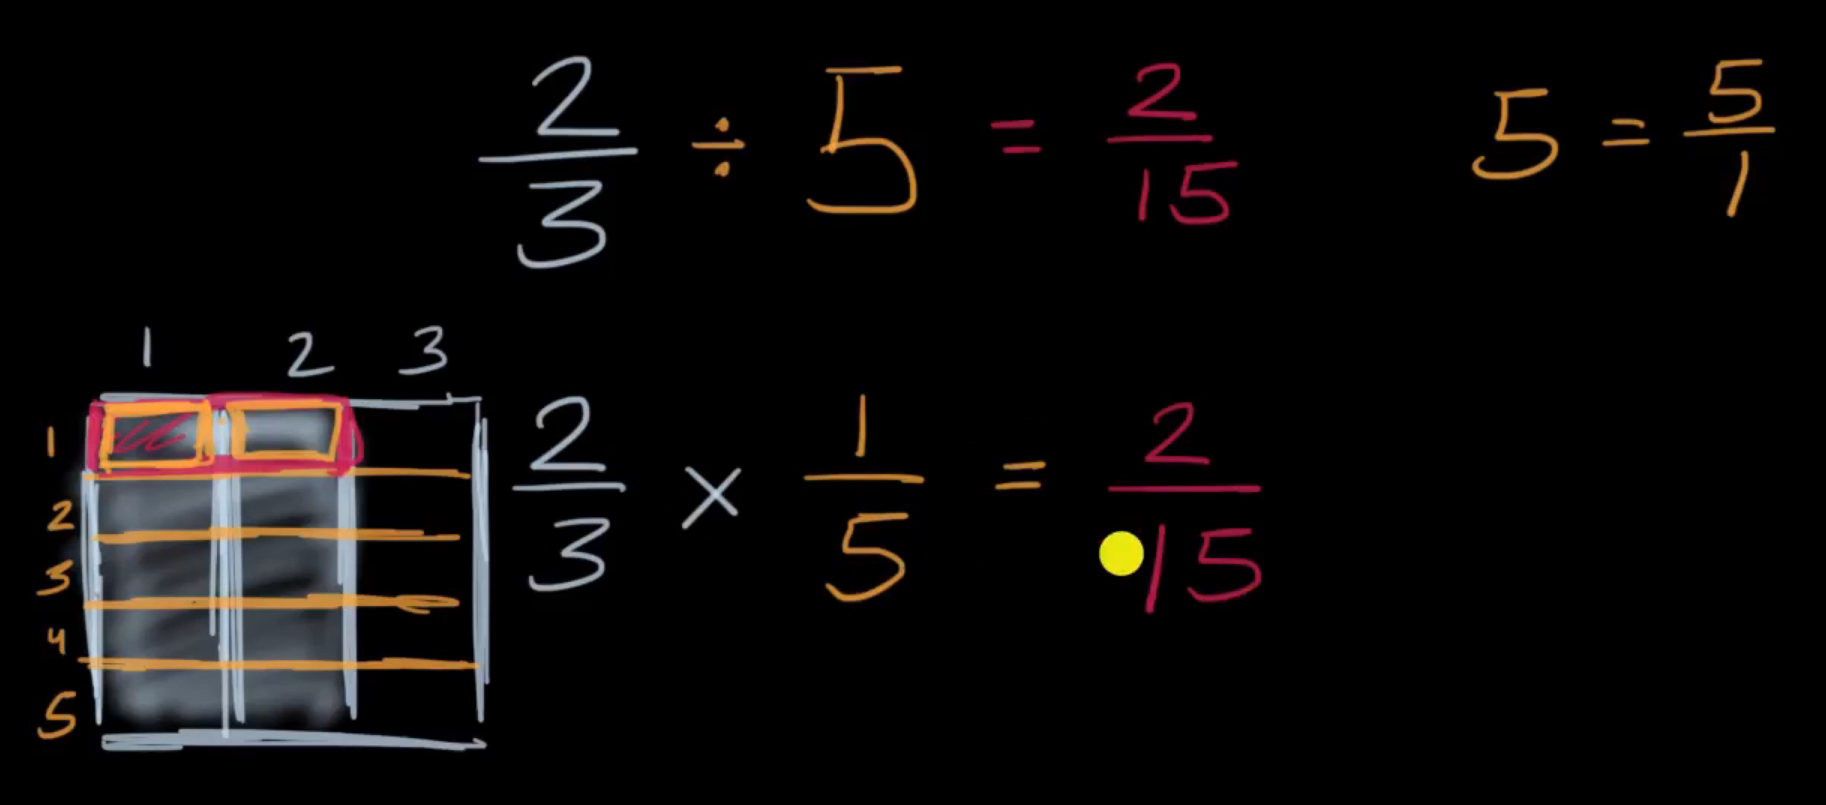 2/3 ÷ 5 = 2/15
5 = 5/1
1 2 3
1
2
3
4
5
2/3 × 1/5 = 2/15